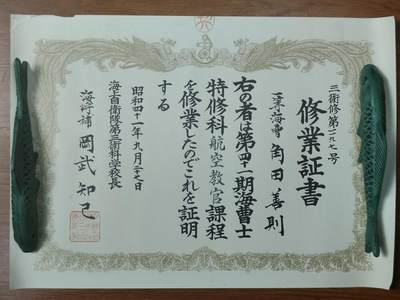 三術修第一一九七号
修業証書
一等海曹 角田善則
右の者は第四十一期海曹士
特修科航空教官課程
を修業したのでこれを証明
する
昭和四十一年九月二十七日
海上自衛隊第三術科学校長
海将補 岡武知己